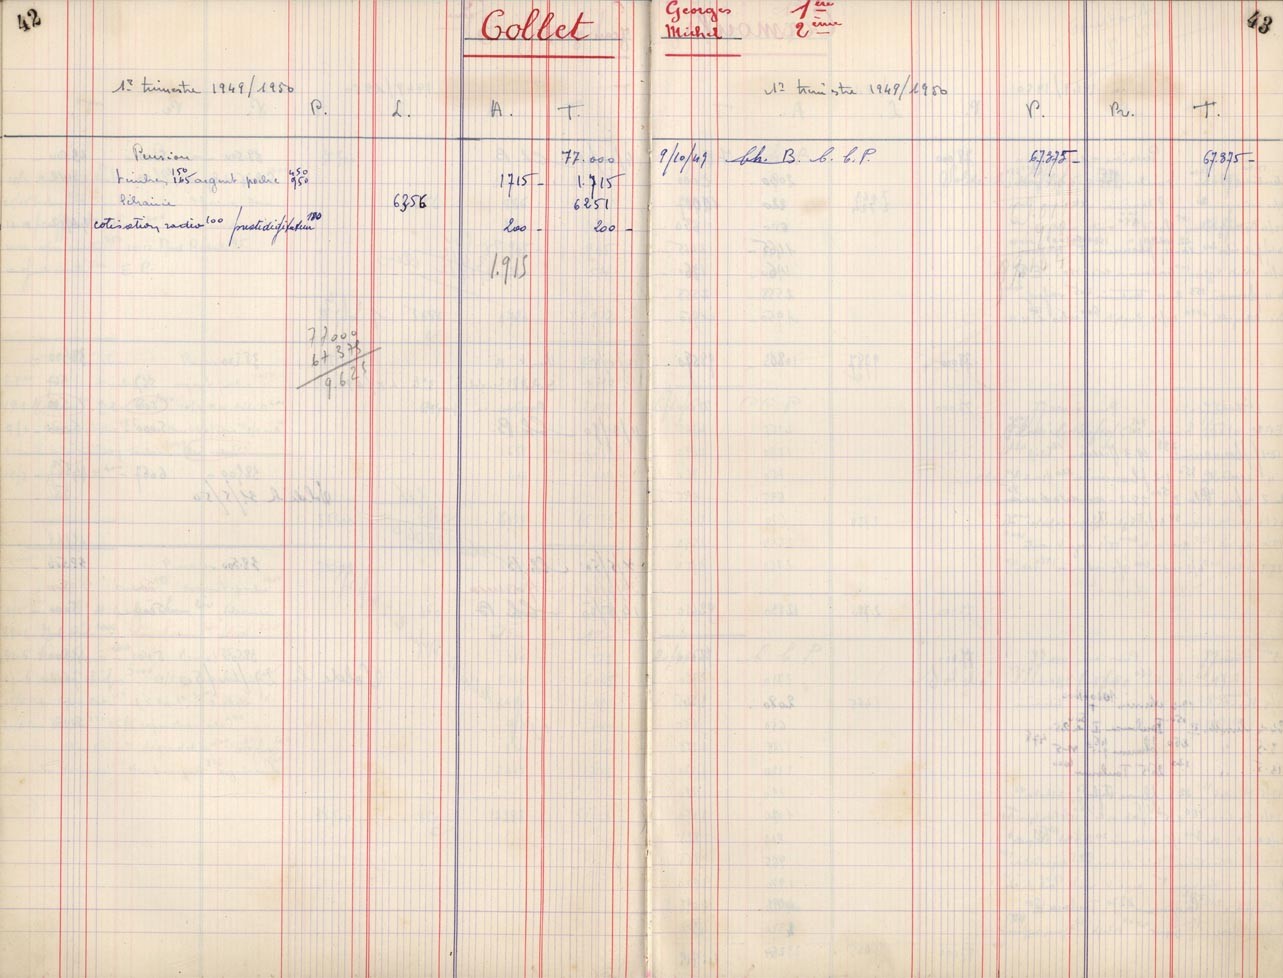 42
Collet
Georges 1ère
Michel 2ème
43
1r trimestre 1949/1950
P. L. A. T.
Pension 77.000
timbres 150 165 argent poche 450 950 1715 - 1.715
librairie 6356 6251
cotisation radio 100 prestidigitateur 100 200 - 200 -
1.915
77000
67375
9.625
1r trimestre 1949/1950
P. Br. T.
9/10/49 Ch. B. C. C. P. 67375 - 67375 -